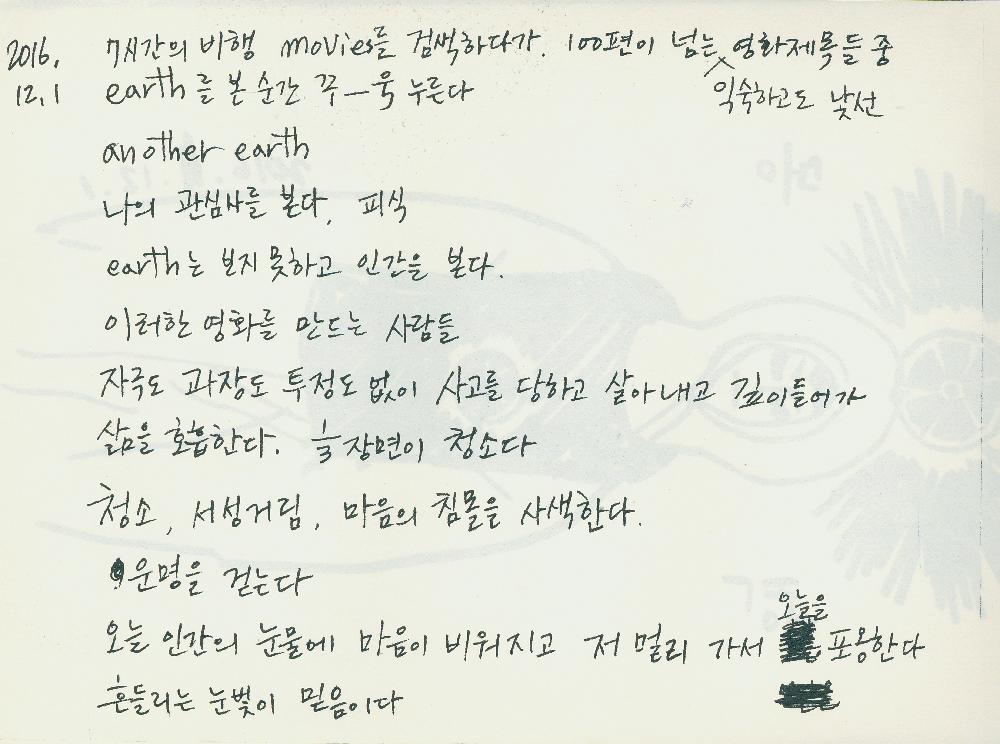 2016. 7시간의 비행 movies를 검색하다가. 100편이 넘는 영화제목들 중
12.1 earth를 본 순간 꾸—욱 누른다 익숙하고도 낯선
another earth
나의 관심사를 본다. 피식
earth는 보지 못하고 인간을 본다.
이러한 영화를 만드는 사람들
자극도 과장도 투정도 없이 사고를 당하고 살아내고 깊이들어가
삶을 호흡한다. 늘 장면이 청소다
청소, 서성거림, 마음의 침몰을 사색한다.
운명을 걷는다
오늘을
오늘 인간의 눈물에 마음이 비워지고 저 멀리 가서 포옹한다
흔들리는 눈빛이 믿음이다